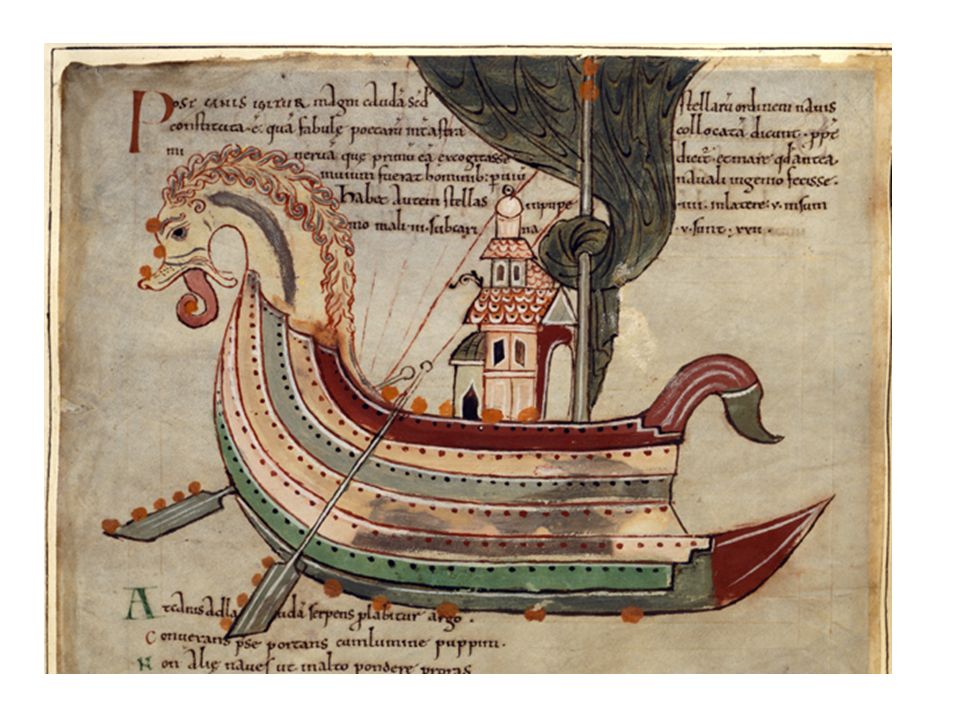 Post canis igitur magni caudā sed stellarū ordinem navis
constituta ·ē· quā fabulę poetarū int astra collocatā dicunt · ppt
mi nervā que primū eā excogitasse dicit et mare qd antea
invium fuerat hominib: pviū navali ingenio fecisse ·
habet autem stellas in puppe ·iiii· in latere · v · in sum
mo mali · iii · sub cari na · v · sunt · xxii ·
At canis ad la caudā serpens plabitur argo ·
Conversam pse portans cum lumine puppim ·
Non alię naves ut in alto pondere proras